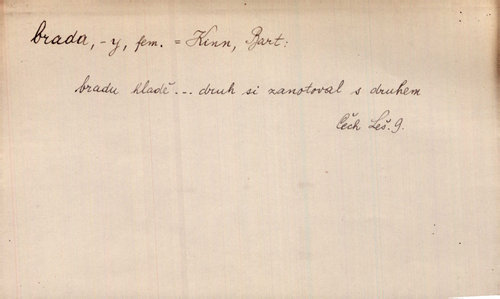 brada, -y, fem. = Kinn, Bart:
bradu hladě... druh si zanotoval s druhem
Čech Leš. 9.